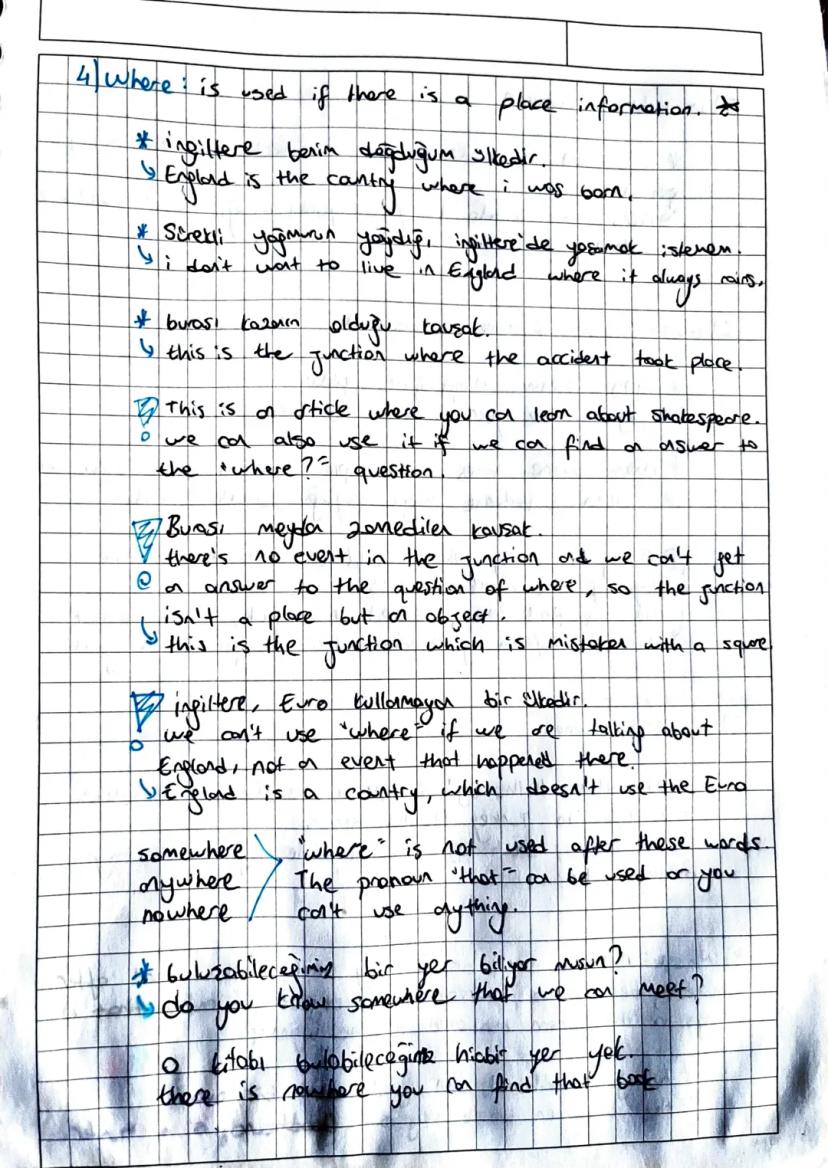 4) Where: is used if there is a place information.
* ingiltere benim doğduğum ülkedir.
England is the cantry where i was born.
* Sürekli yağmurun yağdığı, ingiltere'de yaşamak istemem.
i don't want to live in England where it always rains.
* burası kazanın olduğu kavşak.
this is the junction where the accident took place.
This is an article where you can learn about Shakespeare.
we can also use it if we can find an answer to
the "where?" question.
Burası meydan zannedilen kavşak.
there's no event in the junction and we can't get
an answer to the question of where, so the junction
isn't a place but an object.
this is the junction which is mistaken with a square
ingiltere, Euro kullanmayan bir ülkedir.
we can't use "where" if we are talking about
England, not an event that happened there.
England is a country, which doesn't use the Euro
somewhere
anywhere
nowhere
"where" is not used after these words.
The pronoun "that" can be used or you
can't use anything.
* buluşabileceğimiz bir yer biliyor musun?
do you know somewhere that we can meet?
O kitabı bulabileceğiniz hiçbir yer yok.
there is nowhere you can find that book